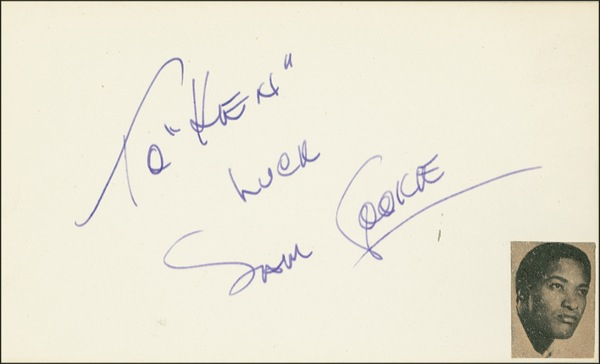 To "Ken"
Luck
Sam Cooke